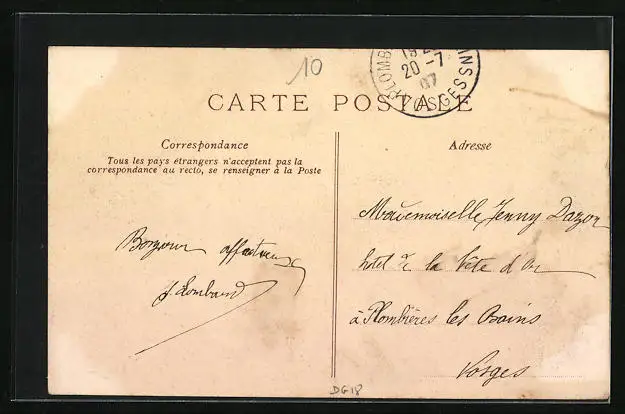 10
PLOMB
19
20-7
07
VOSGES
CARTE POSTALE
Correspondance
Tous les pays étrangers n'acceptent pas la
correspondance au recto, se renseigner à la Poste
Bonjour affectueux
J. Lombard
Adresse
Mademoiselle Jenny Dazon
hotel de la Tête d'Or
à Plombières les Bains
Vosges
DG18